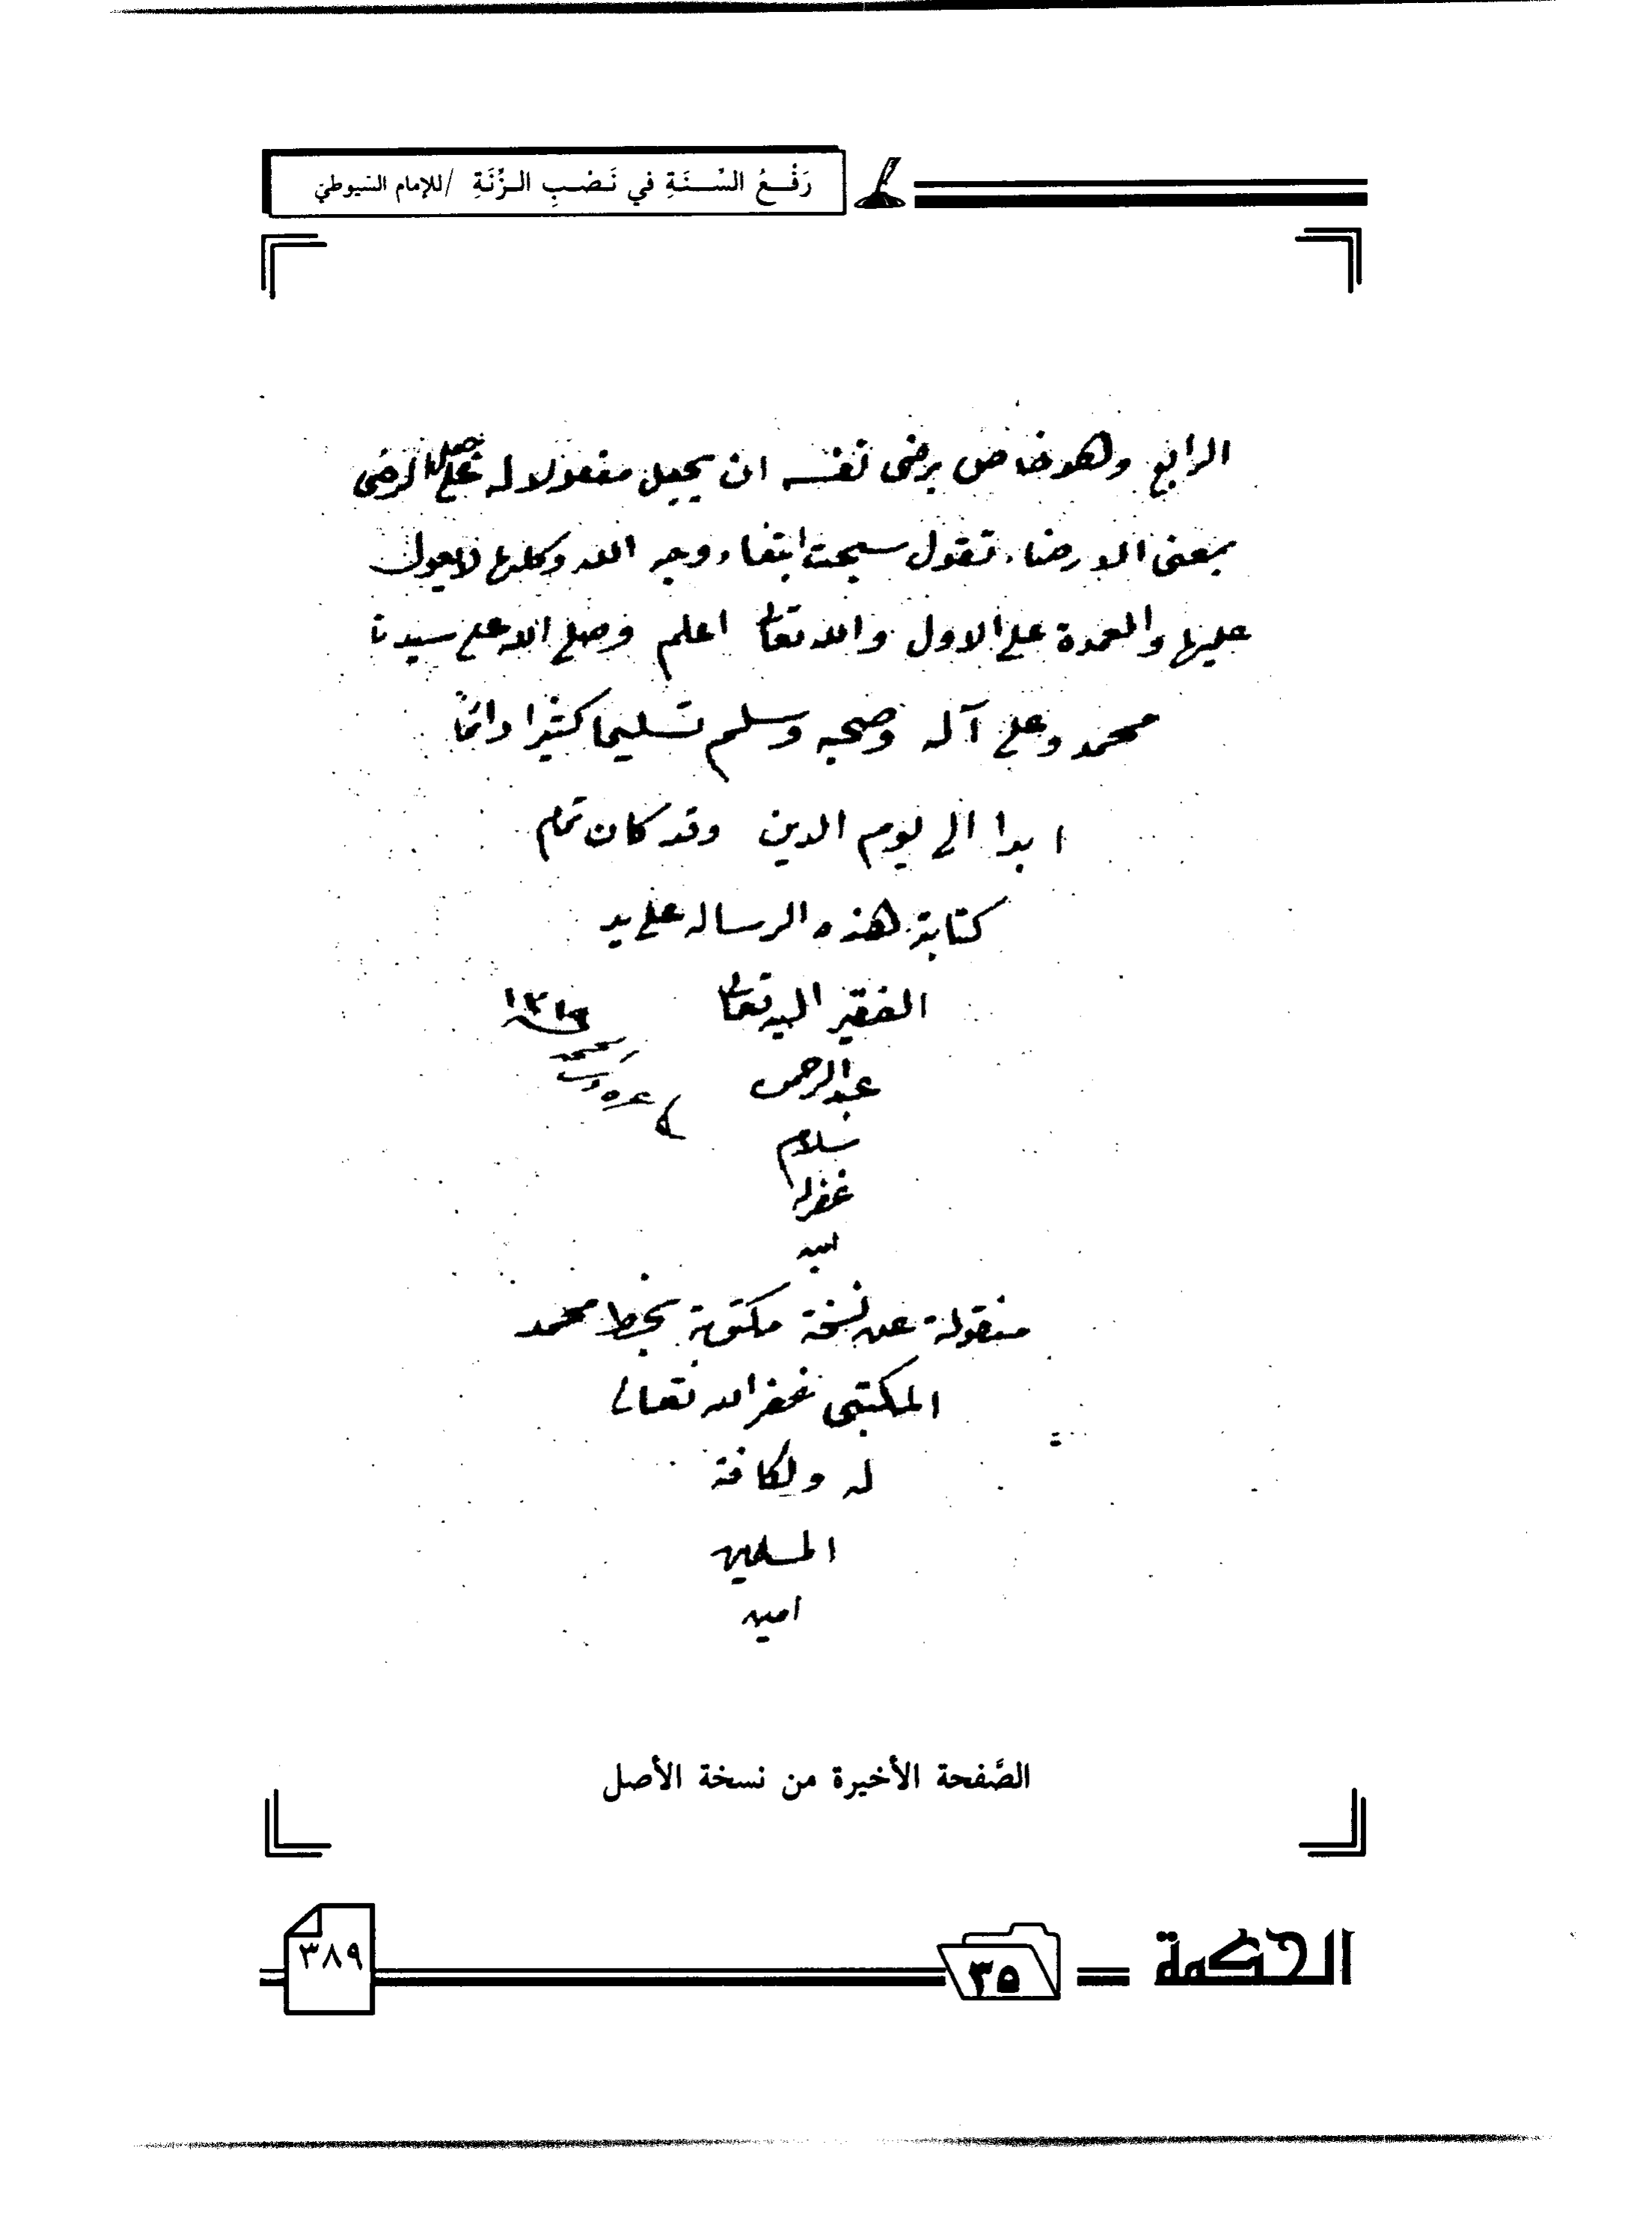 رَفْعُ السُّنَةِ في نَصْبِ الزِّنَةِ /للإمام السّيوطيّ
الرابع وهو خاص برضى نفسه ان يجعل مفعولا له على جعل الرضى
بمعنى الارضاء تقول سبحت ابتغاء وجه الله وكلها لا يعول
عليها والعمدة على الاول والله تعالى اعلم وصلى الله على سيدنا
محمد وعلى آله وصحبه وسلم تسليما كثيرا دائما
ابدا الى يوم الدين وقد كان تمام
كتابة هذه الرسالة على يد
الفقير اليه تعالى
عبد الرحمن
سلام
غفر له
امين
١٣١٩
منقولة عن نسخة مكتوبة بخط محمد
المكتبي غفر الله تعالى
له ولكافة
المسلمين
امين
الصَّفحة الأخيرة من نسخة الأصل
الحكمة ٣٥ ٣٨٩